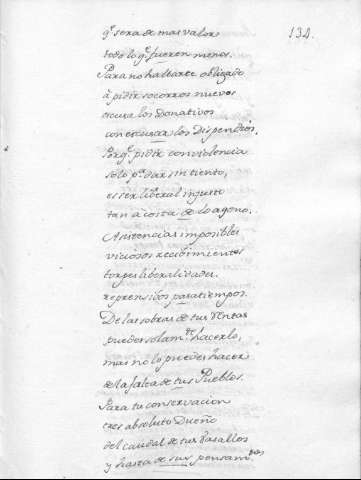 134.
q.e sera de mas valor
todo lo q.e fueren menos.
Para no hallarte obligado
à pidir socorros nuevos
escusa los donativos
con escusar los dispendios.
Porq.e pidir con violencia
solo p.a dar sin tiento,
es ser liberal injusto
tan à costa de lo ageno.
Asistencias imposibles
viciosos recibimientos
torpes liberalidades.
reprensibles pasatiempos.
De las sobras de tus Rentas
puedes solam.te hacerlo,
mas no lo puedes hacer
de la falta de tus Pueblos.
Para tu conservacion
eres absoluto Dueño
del caudal de tus Vasallos
y hasta de sus pensam.tos